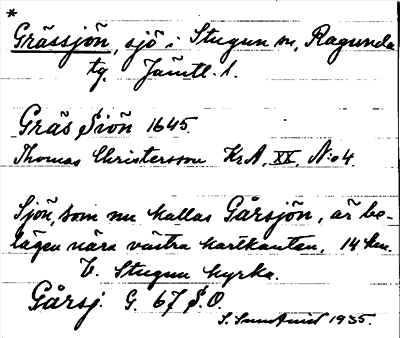 *
Grässjön, sjö i Stugun sn, Ragunda
tg. Jämtl. l.
Gräs Siön 1645.
Thomas Christersson KrA, XX, N:o 4.
Sjön, som nu kallas Gårsjön, är be-
lägen nära västra kartkanten, 14 km.
V. Stugun kyrka.
Gårsj. G. 67 S.O.
S. 1935.